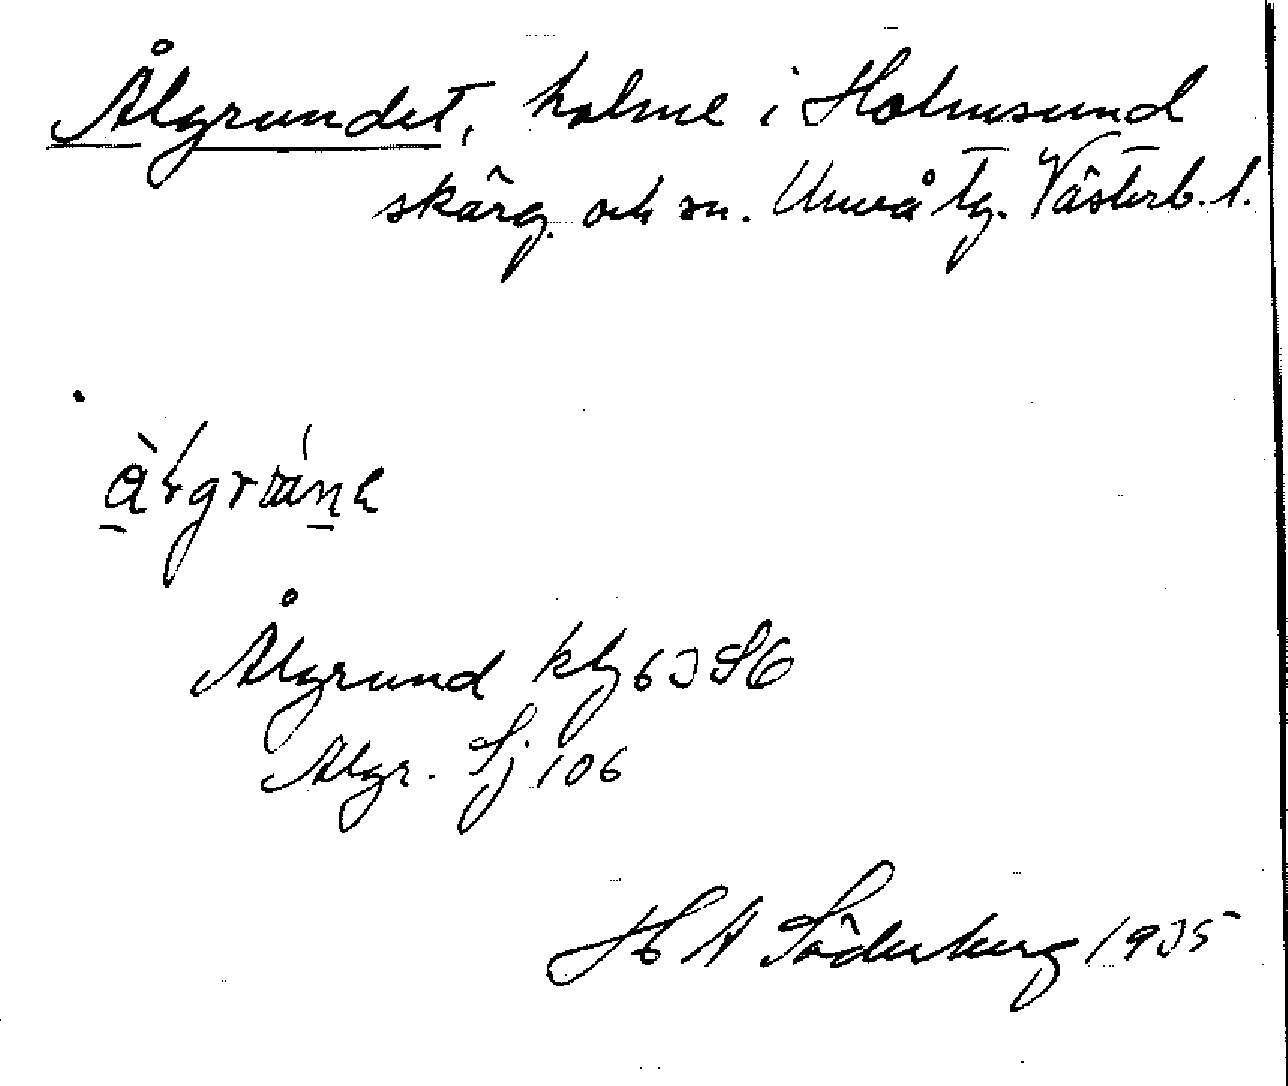 Ålgrundet, holme i Holmsund
skärg. och sn. Umeå tg. Västerb. l.
Ålgrund kbl 63 SO
Ålgr. Sj 106
H A Söderberg 1935